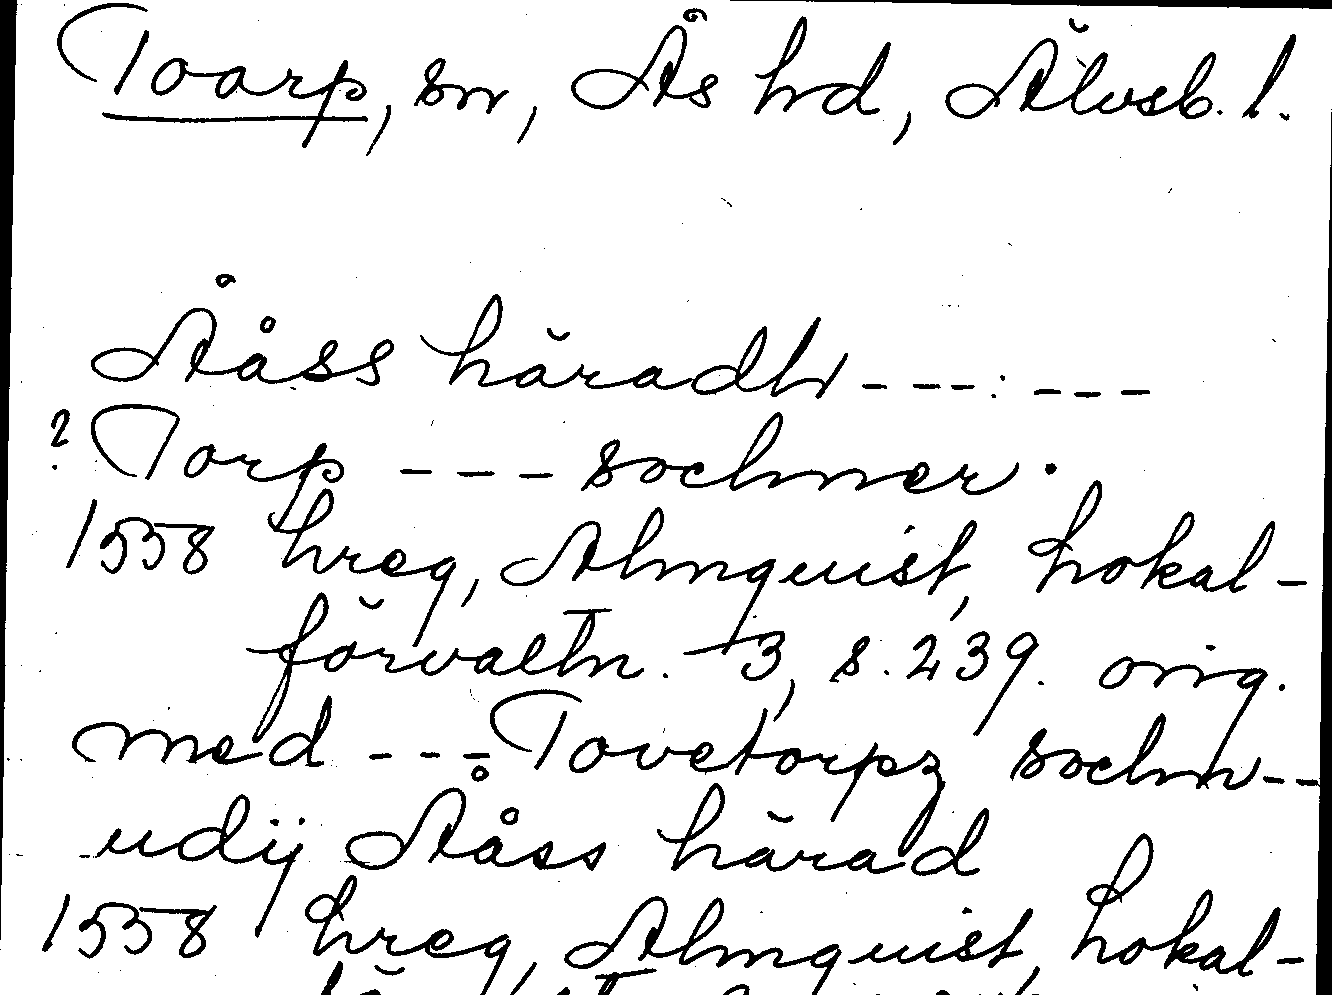 Toarp, sn, Ås hd, Älvsb. l.
Åååss häradh --- : ---
? Torp --- sochner.
1558 hreg, Almquist, Lokal-
förvaltn. 3, s. 239. orig.
med --- Tovetorpz sochn --
udij Ååss härad
1558 hreg, Almquist, Lokal-